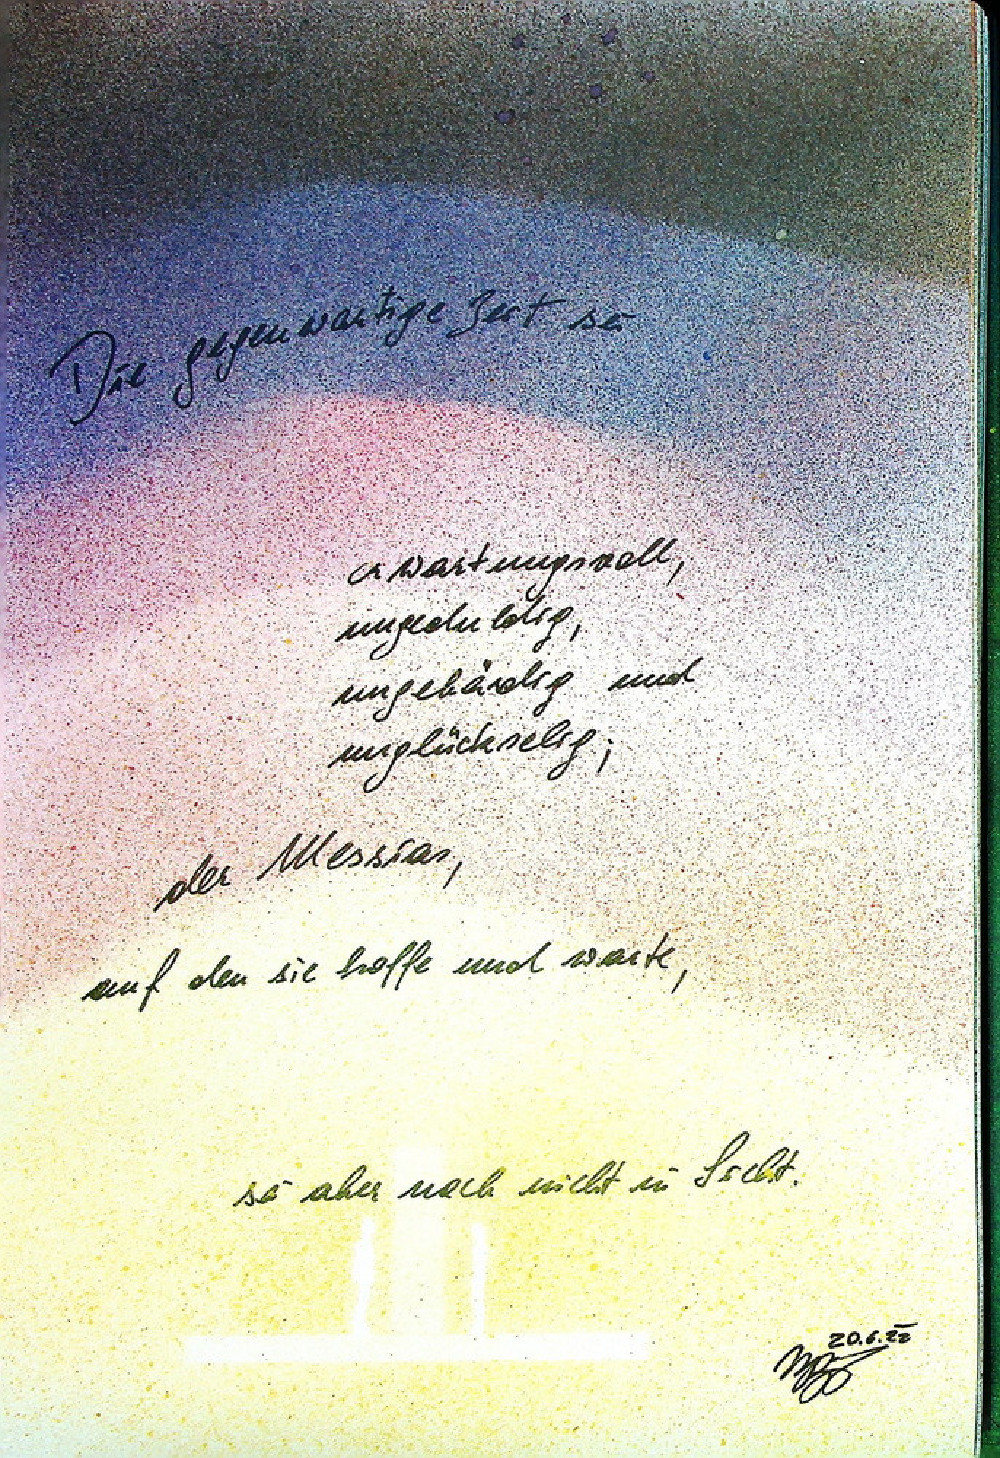 Die gegenwärtige Zeit sei
erwartungsvoll,
ungeduldig,
ungebärdig und
unglückselig;
der Messias,
auf den sie hoffe und warte,
sei aber noch nicht in Sicht.
20.6.22